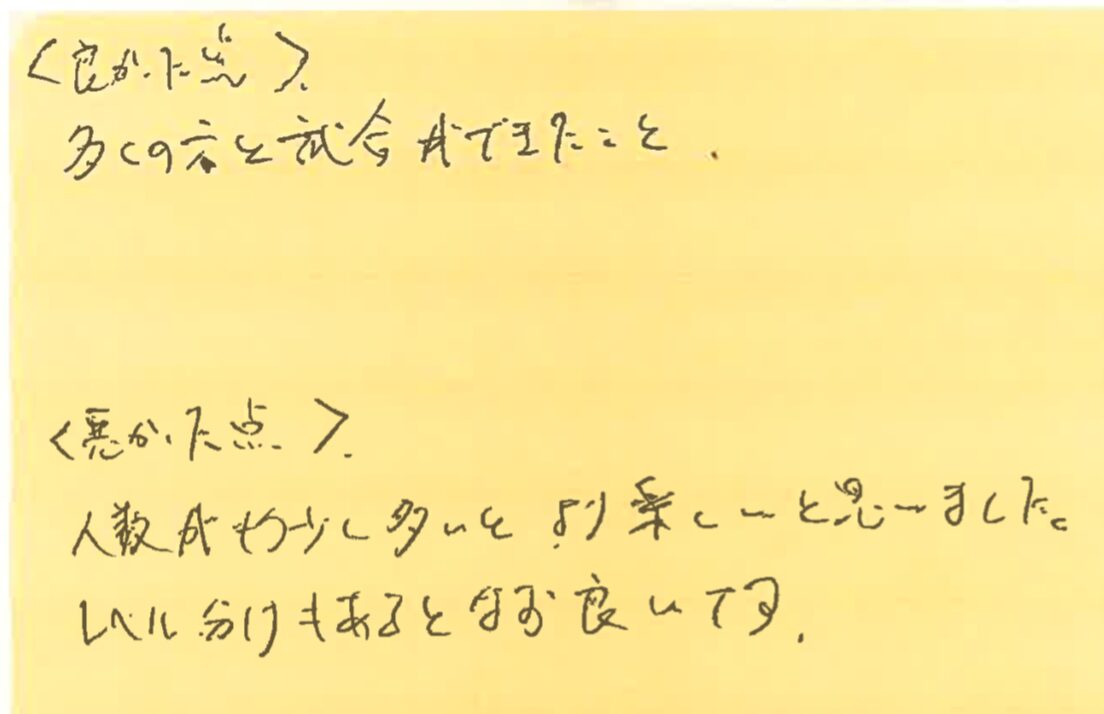 <良かった点>.
多くの方と試合ができたこと.
<悪かった点>.
人数がもう少し多いとより楽しいと思いました。
レベル分けもあるとなお良いです.